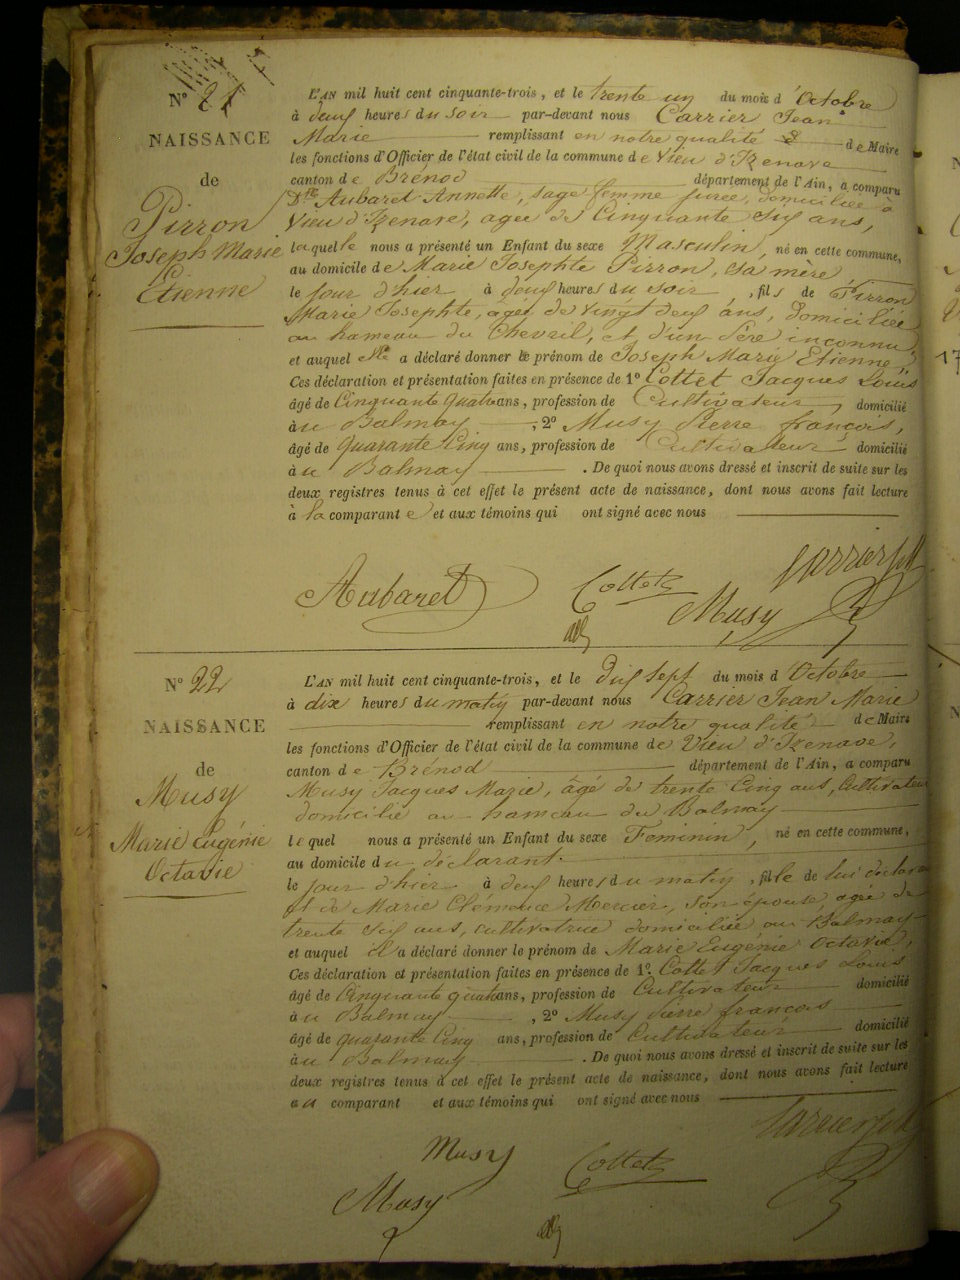 N° 21
NAISSANCE
de
Pirron
Joseph Marie
Etienne
L'AN mil huit cent cinquante-trois, et le trente un du mois d'Octobre
à deux heures du soir par-devant nous Carrier Jean
Marie remplissant en notre qualité de Maire
les fonctions d'Officier de l'état civil de la commune de Vieu d'Izenave
canton de Brénod département de l'Ain, a comparu
Aubaret Annette, sage femme jurée, domiciliée à
Vieu d'Izenave, agée de Cinquante Six ans,
laquelle nous a présenté un Enfant du sexe Masculin, né en cette commune,
au domicile de Marie Josephte Pirron, sa mère
le jour d'hier à deux heures du soir, fils de Pirron
Marie Josephte, agée de vingt deux ans, domiciliée
au hameau du Chevril, et d'un Père inconnu,
et auquel elle a déclaré donner le prénom de Joseph Marie Etienne,
Ces déclaration et présentation faites en présence de 1° Cottet Jacques Louis
âgé de Cinquante quatre ans, profession de Cultivateur, domicilié
à u Balmay, 2° Musy Pierre françois,
âgé de quarante Cinq ans, profession de Cultivateur domicilié
à u Balmay. De quoi nous avons dressé et inscrit de suite sur les
deux registres tenus à cet effet le présent acte de naissance, dont nous avons fait lecture
à la comparante et aux témoins qui ont signé avec nous
Aubaret Cottet Musy Carrier
N° 22
NAISSANCE
de
Musy
Marie Eugénie
Octavie
L'AN mil huit cent cinquante-trois, et le dix sept du mois d'Octobre
à dix heures du matin par-devant nous Carrier Jean Marie
remplissant en notre qualité de Maire
les fonctions d'Officier de l'état civil de la commune de Vieu d'Izenave,
canton de Brénod département de l'Ain, a comparu
Musy Jacques Marie, âgé de trente Cinq ans, Cultivateur
domicilié au hameau du Balmay
lequel nous a présenté un Enfant du sexe Feminin, né en cette commune,
au domicile du déclarant.
le jour d'hier à deux heures du matin, fille de lui déclarant
et de Marie Clémence Mercier, son épouse, agée de
trente Six ans, cultivatrice domiciliée au Balmay
et auquel il a déclaré donner le prénom de Marie Eugénie Octavie,
Ces déclaration et présentation faites en présence de 1° Cottet Jacques Louis
âgé de Cinquante quatre ans, profession de Cultivateur domicilié
à u Balmay, 2° Musy Pierre françois
âgé de quarante Cinq ans, profession de Cultivateur domicilié
à u Balmay. De quoi nous avons dressé et inscrit de suite sur les
deux registres tenus à cet effet le présent acte de naissance, dont nous avons fait lecture
au comparant et aux témoins qui ont signé avec nous
Musy Cottet Carrier
Musy